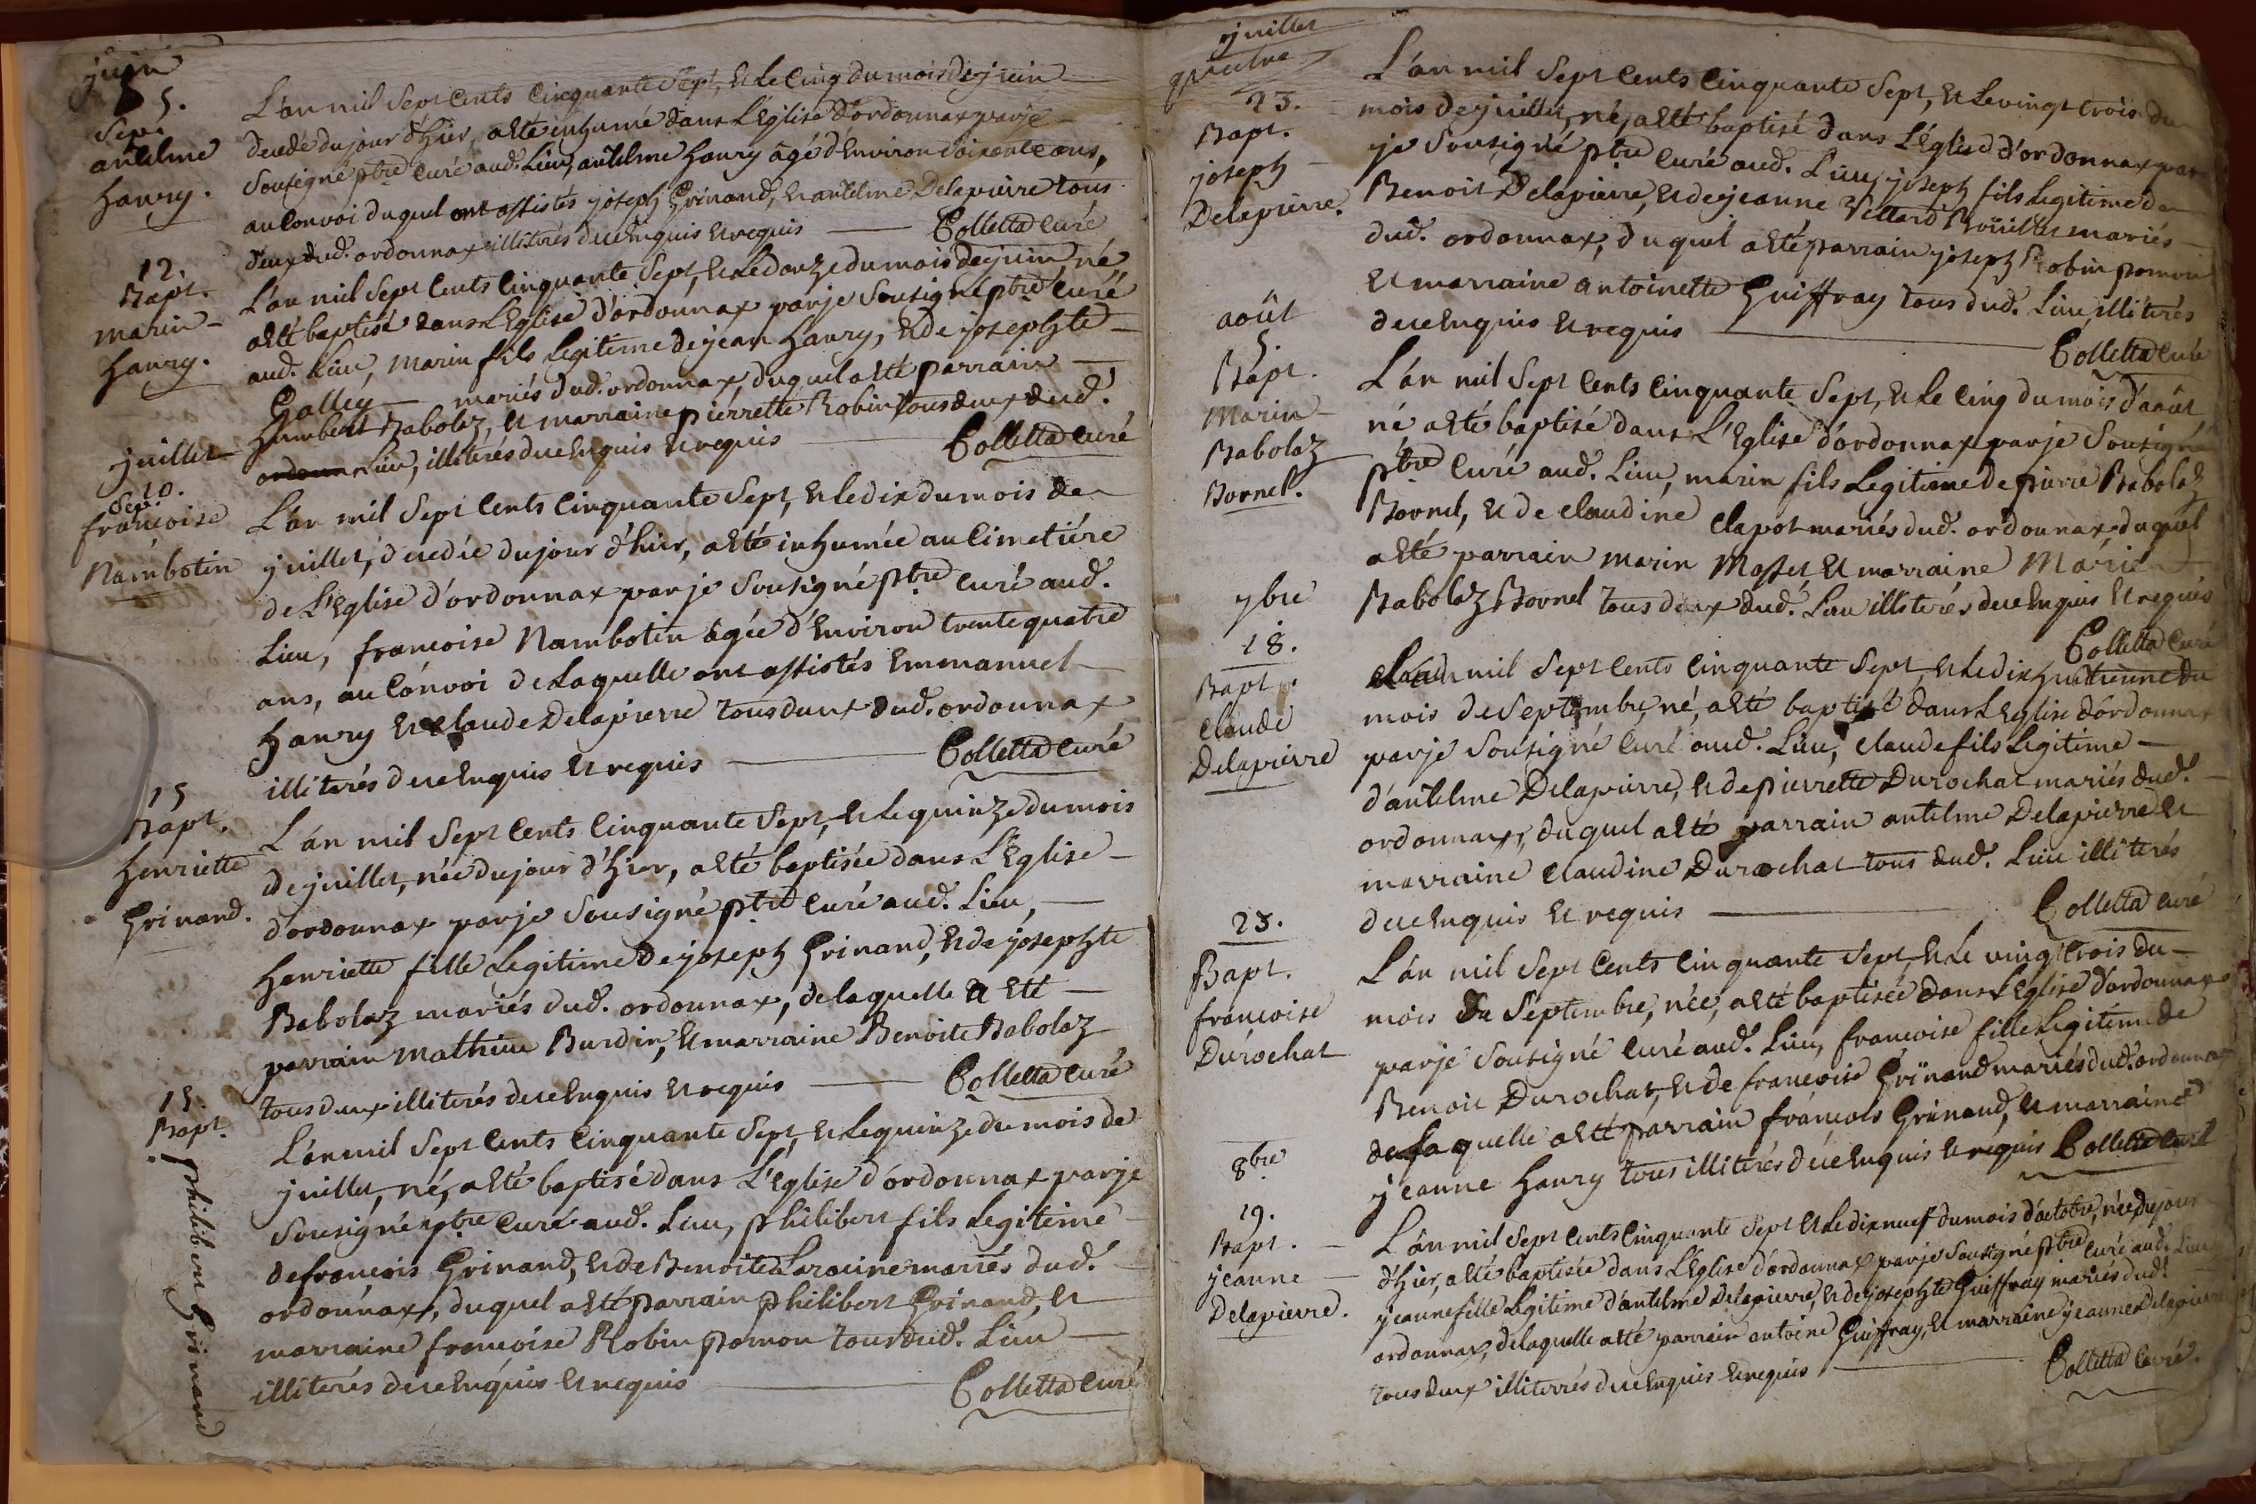 juin
5.
Sep.
antelme
haury.
L'an mil Sept Cents Cinquante Sept, et Le Cinq du mois de juin
decedé du jour d'hier, a eté inhumé dans L'Eglise d'ordonnax par je
Sousigné ptre Curé aud. Lieu, antelme haury âgé d'Environ soixante ans,
au Convoi duquel ont assistés joseph Grinand, et antelme Delapierre tous
deux dud. ordonnax illiterés de ce Enquis et requis Colletta Curé
12.
Bapt.
marin
haury.
L'an mil Sept Cents Cinquante Sept, et Le douze du mois de juin né
a eté baptisé dans L'Eglise d'ordonnax par je Sousigné ptre Curé
aud. Lieu, Marin fils Legitime de jean haury, et de josephte
Galley mariés dud. ordonnax, duquel a eté parrain
humbert Babolaz, et marraine pierrette Robin tous deux dud.
Lieu, illiterés de ce Enquis et requis Colletta Curé
juillet
10.
Sep.
françoise
Nambotin
L'an mil Sept Cents Cinquante Sept, et Le dix du mois de
juillet, decedée du jour d'hier, a eté inhumée au Cimetiére
de L'Eglise d'ordonnax par je Sousigné ptre Curé aud.
Lieu, françoise Nambotin âgée d'Environ trente quatre
ans, au Convoi de Laquelle ont assistés Emmanuel
haury et Claude Delapierre tous deux dud. ordonnax
illiterés de ce Enquis et requis Colletta Curé
15
Bapt.
henriette
Grinand.
L'an mil Sept Cents Cinquante Sept, et Le quinze du mois
de juillet, née du jour d'hier, a eté baptisée dans L'Eglise
d'ordonnax par je Sousigné ptre Curé aud. Lieu,
henriette fille Legitime de joseph Grinand, et de josephte
Babolaz mariés dud. ordonnax, de laquelle a eté
parrain Mathieu Burdin, et marraine Benoite Babolaz
tous deux illiterés de ce Enquis et requis Colletta Curé
15.
Bapt.
philibert Grinand
L'an mil Sept Cents Cinquante Sept, et Le quinze du mois de
juillet, né, a eté baptisé dans L'Eglise d'ordonnax par je
Sousigné ptre Curé aud. Lieu, philibert fils Legitime
de françois Grinand, et de Benoite Laracine mariés dud.
ordonnax, duquel a eté parrain philibert Grinand, et
marraine françoise Robin pomon tous dud. Lieu
illiterés de ce Enquis et requis Colletta Curé
juillet
23.
Bapt.
joseph
Delapierre.
L'an mil Sept Cents Cinquante Sept, et Le vingt trois du
mois de juillet, né, a eté baptisé dans L'Eglise d'ordonnax par
je Sousigné ptre Curé aud. Lieu, joseph fils Legitime de
Benoit Delapierre, et de jeanne Villard mariés
dud. ordonnax, duquel a eté parrain joseph Robin pomon
et marraine antoinette Guiffray tous dud. Lieu illiterés
de ce Enquis et requis Colletta Curé
août
5.
Bapt.
Marin
Babolaz
Bornel.
L'an mil Sept Cents Cinquante Sept, et Le Cinq du mois d'août
né a eté baptisé dans L'Eglise d'ordonnax par je Sousigné
ptre Curé aud. Lieu, marin fils Legitime de pierre Babolaz
Bornel, et de Claudine Clapot mariés dud. ordonnax, duquel
a eté parrain marin Masset et marraine Marie
Babolaz Bornel tous deux dud. Lieu illiterés de ce Enquis et requis
Colletta Curé
7bre
18.
Bapt.
Claude
Delapierre
L'an mil Sept Cents Cinquante Sept, et Le dix huitieme du
mois de Septembre, né, a eté baptisé dans L'Eglise d'ordonnax
par je Sousigné Curé aud. Lieu, Claude fils Legitime
d'antelme Delapierre, et de pierrette Durochat mariés dud.
ordonnax, duquel a eté parrain antelme Delapierre et
marraine Claudine Durochat tous dud. Lieu illiterés
de ce Enquis et requis Colletta Curé
23.
Bapt.
françoise
Durochat
L'an mil Sept Cents Cinquante Sept, et Le vingt trois du
mois de Septembre, née, a eté baptisée dans L'Eglise d'ordonnax
par je Sousigné Curé aud. Lieu, françoise fille Legitime de
Benoit Durochat, et de françoise Grinand mariés dud. ordonnax
de Laquelle a eté parrain françois Grinand, et marraine
jeanne haury tous illiterés de ce Enquis et requis Colletta Curé
8bre
19.
Bapt.
jeanne
Delapierre.
L'an mil Sept Cents Cinquante Sept et Le dix neuf du mois d'octobre, née du jour
d'hier, a eté baptisée dans L'Eglise d'ordonnax par je Sousigné ptre Curé aud. Lieu
jeanne fille Legitime d'antelme Delapierre, et de josephte Guiffray mariés dud.
ordonnax, de laquelle a eté parrain antoine Guiffray, et marraine jeanne Delapierre
tous deux illiterrés de ce Enquis et requis Colletta Curé.